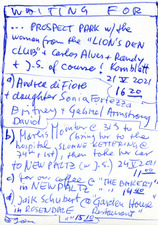 WAITING FOR
... PROSPECT PARK w/ the
woman from the "LION'S DEN
CLUB" + Carlos Alves + Randy
+ J.S. of course! Kornblatt
a) Andrea di Fiore 21 V 2021
+ daughter Sonia Fortezza 16 20
Britney + Gabriel Armstrong
David
b) Martis Momber @ 315 to
bring her to the
hospital (SLOANE KETTERING @
34th + 1st), then take her
to NEW PALTZ (w J.S.) 24 V 2021
c) for our coffee @ "THE BAKERY" 11 00
in NEW PALTZ
d) Jaik Schubert @ Garden House
in ROSENDALE Restaurant"
"15/10"